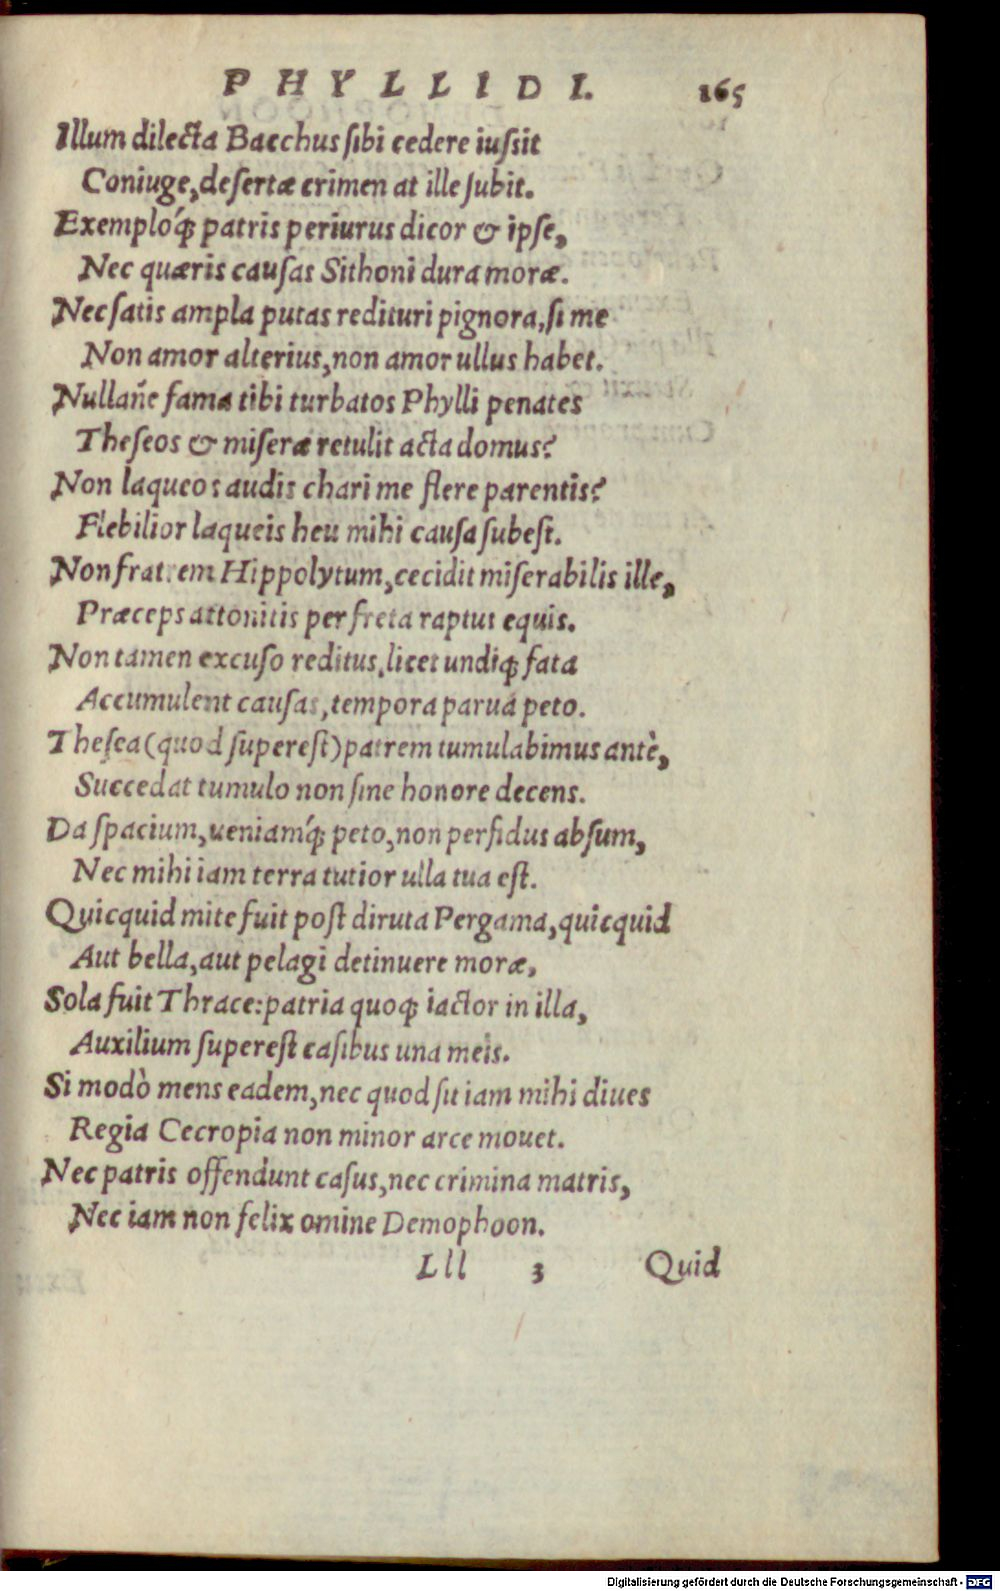 PHYLLIDI. 165
Illum dilecta Bacchus ſibi cedere iuſsit
Coniuge, deſertæ crimen at ille ſubit.
Exemplóq́; patris periurus dicor & ipſe,
Nec quæris cauſas Sithoni dura moræ.
Nec ſatis ampla putas redituri pignora, ſi me
Non amor alterius, non amor ullus habet.
Nullan̄e fama tibi turbatos Phylli penates
Theſeos & miſeræ retulit acta domus?
Non laqueos audis chari me flere parentis?
Flebilior laqueis heu mihi cauſa ſubeſt.
Non fratrem Hippolytum, cecidit miſerabilis ille,
Præceps attonitis per freta raptus equis.
Non tamen excuſo reditus, licet undiq; fata
Accumulent cauſas, tempora parua peto.
Theſea (quod ſupereſt) patrem tumulabimus antè,
Succedat tumulo non ſine honore decens.
Da ſpacium, ueniamq́; peto, non perfidus abſum,
Nec mihi iam terra tutior ulla tua eſt.
Quicquid mite fuit poſt diruta Pergama, quicquid
Aut bella, aut pelagi detinuere moræ,
Sola fuit Thrace: patria quoq; iactor in illa,
Auxilium ſupereſt caſibus una meis.
Si modò mens eadem, nec quod ſit iam mihi diues
Regia Cecropia non minor arce mouet.
Nec patris offendunt caſus, nec crimina matris,
Nec iam non felix omine Demophoon.
Lll 3 Quid
Digitalisierung gefördert durch die Deutsche Forschungsgemeinschaft - DFG